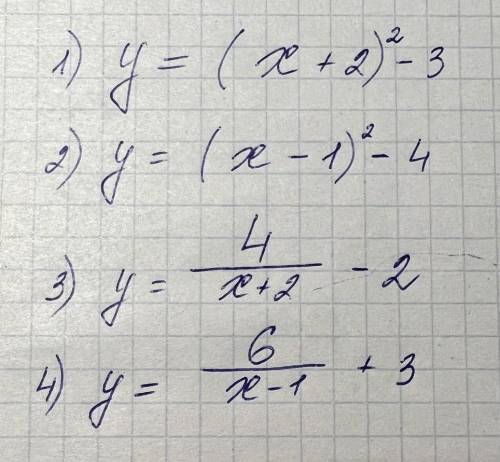 1) y = (x + 2)² - 3
2) y = (x - 1)² - 4
3) y = 4/(x+2) - 2
4) y = 6/(x-1) + 3